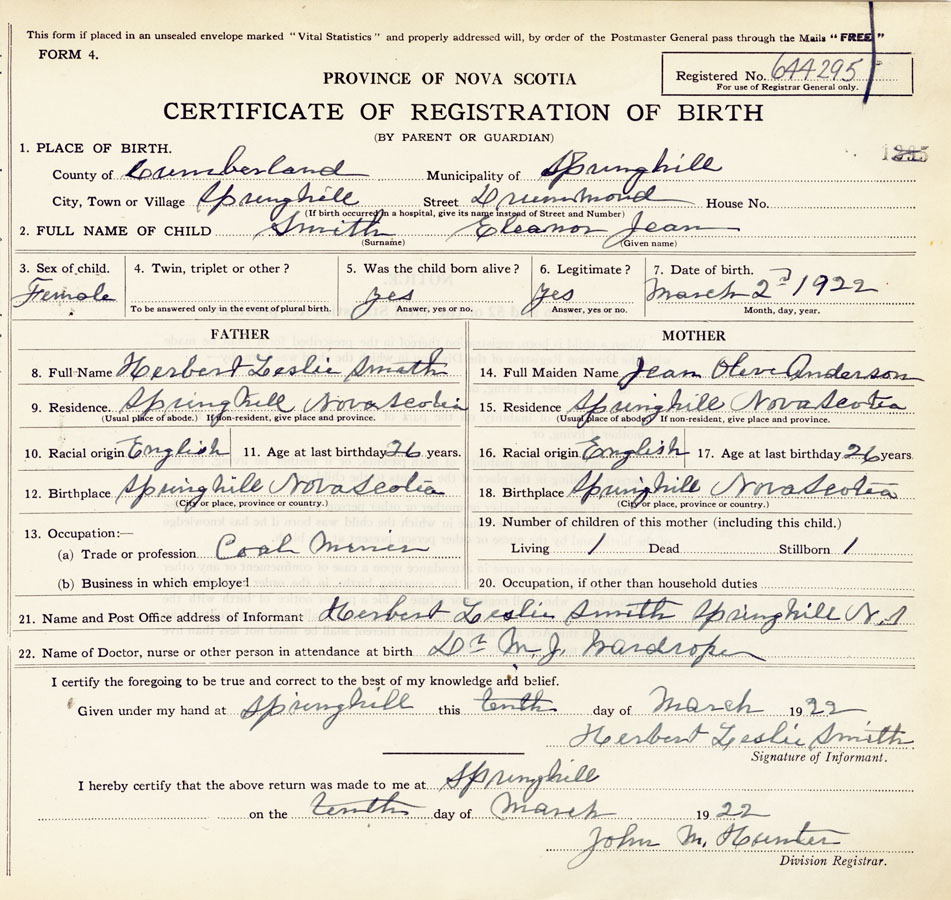 This form if placed in an unsealed envelope marked "Vital Statistics" and properly addressed will, by order of the Postmaster General pass through the Mails "FREE"
FORM 4.
Registered No. 644295
For use of Registrar General only.
PROVINCE OF NOVA SCOTIA
CERTIFICATE OF REGISTRATION OF BIRTH
(BY PARENT OR GUARDIAN)
1. PLACE OF BIRTH.
County of Cumberland Municipality of Springhill
City, Town or Village Springhill Street Drummond House No.
(If birth occurred in a hospital, give its name instead of Street and Number)
2. FULL NAME OF CHILD Smith Eleanor Jean
(Surname) (Given name)
3. Sex of child. 4. Twin, triplet or other? 5. Was the child born alive? 6. Legitimate? 7. Date of birth.
Female yes Yes March 2nd 1922
To be answered only in the event of plural birth. Answer, yes or no. Answer, yes or no. Month, day, year.
FATHER
8. Full Name Herbert Leslie Smith
9. Residence. Springhill Nova Scotia
(Usual place of abode.) If non-resident, give place and province.
10. Racial origin English 11. Age at last birthday 26 years.
12. Birthplace Springhill Nova Scotia
(City or place, province or country.)
13. Occupation:—
(a) Trade or profession Coal Miner
(b) Business in which employed
MOTHER
14. Full Maiden Name Jean Olive Anderson
15. Residence Springhill Nova Scotia
(Usual place of abode) If non-resident, give place and province.
16. Racial origin English 17. Age at last birthday 26 years
18. Birthplace Springhill Nova Scotia
(City or place, province or country.)
19. Number of children of this mother (including this child.)
Living 1 Dead Stillborn 1
20. Occupation, if other than household duties
21. Name and Post Office address of Informant Herbert Leslie Smith Springhill N.S
22. Name of Doctor, nurse or other person in attendance at birth Dr M. J. Wardrope
I certify the foregoing to be true and correct to the best of my knowledge and belief.
Given under my hand at Springhill this tenth day of March 1922
Herbert Leslie Smith
Signature of Informant.
I hereby certify that the above return was made to me at Springhill
on the tenth day of March 1922
John M. Hunter
Division Registrar.